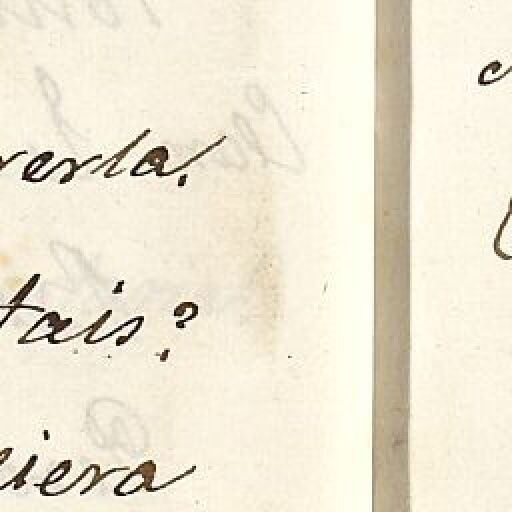 rerla.
tais?
iera